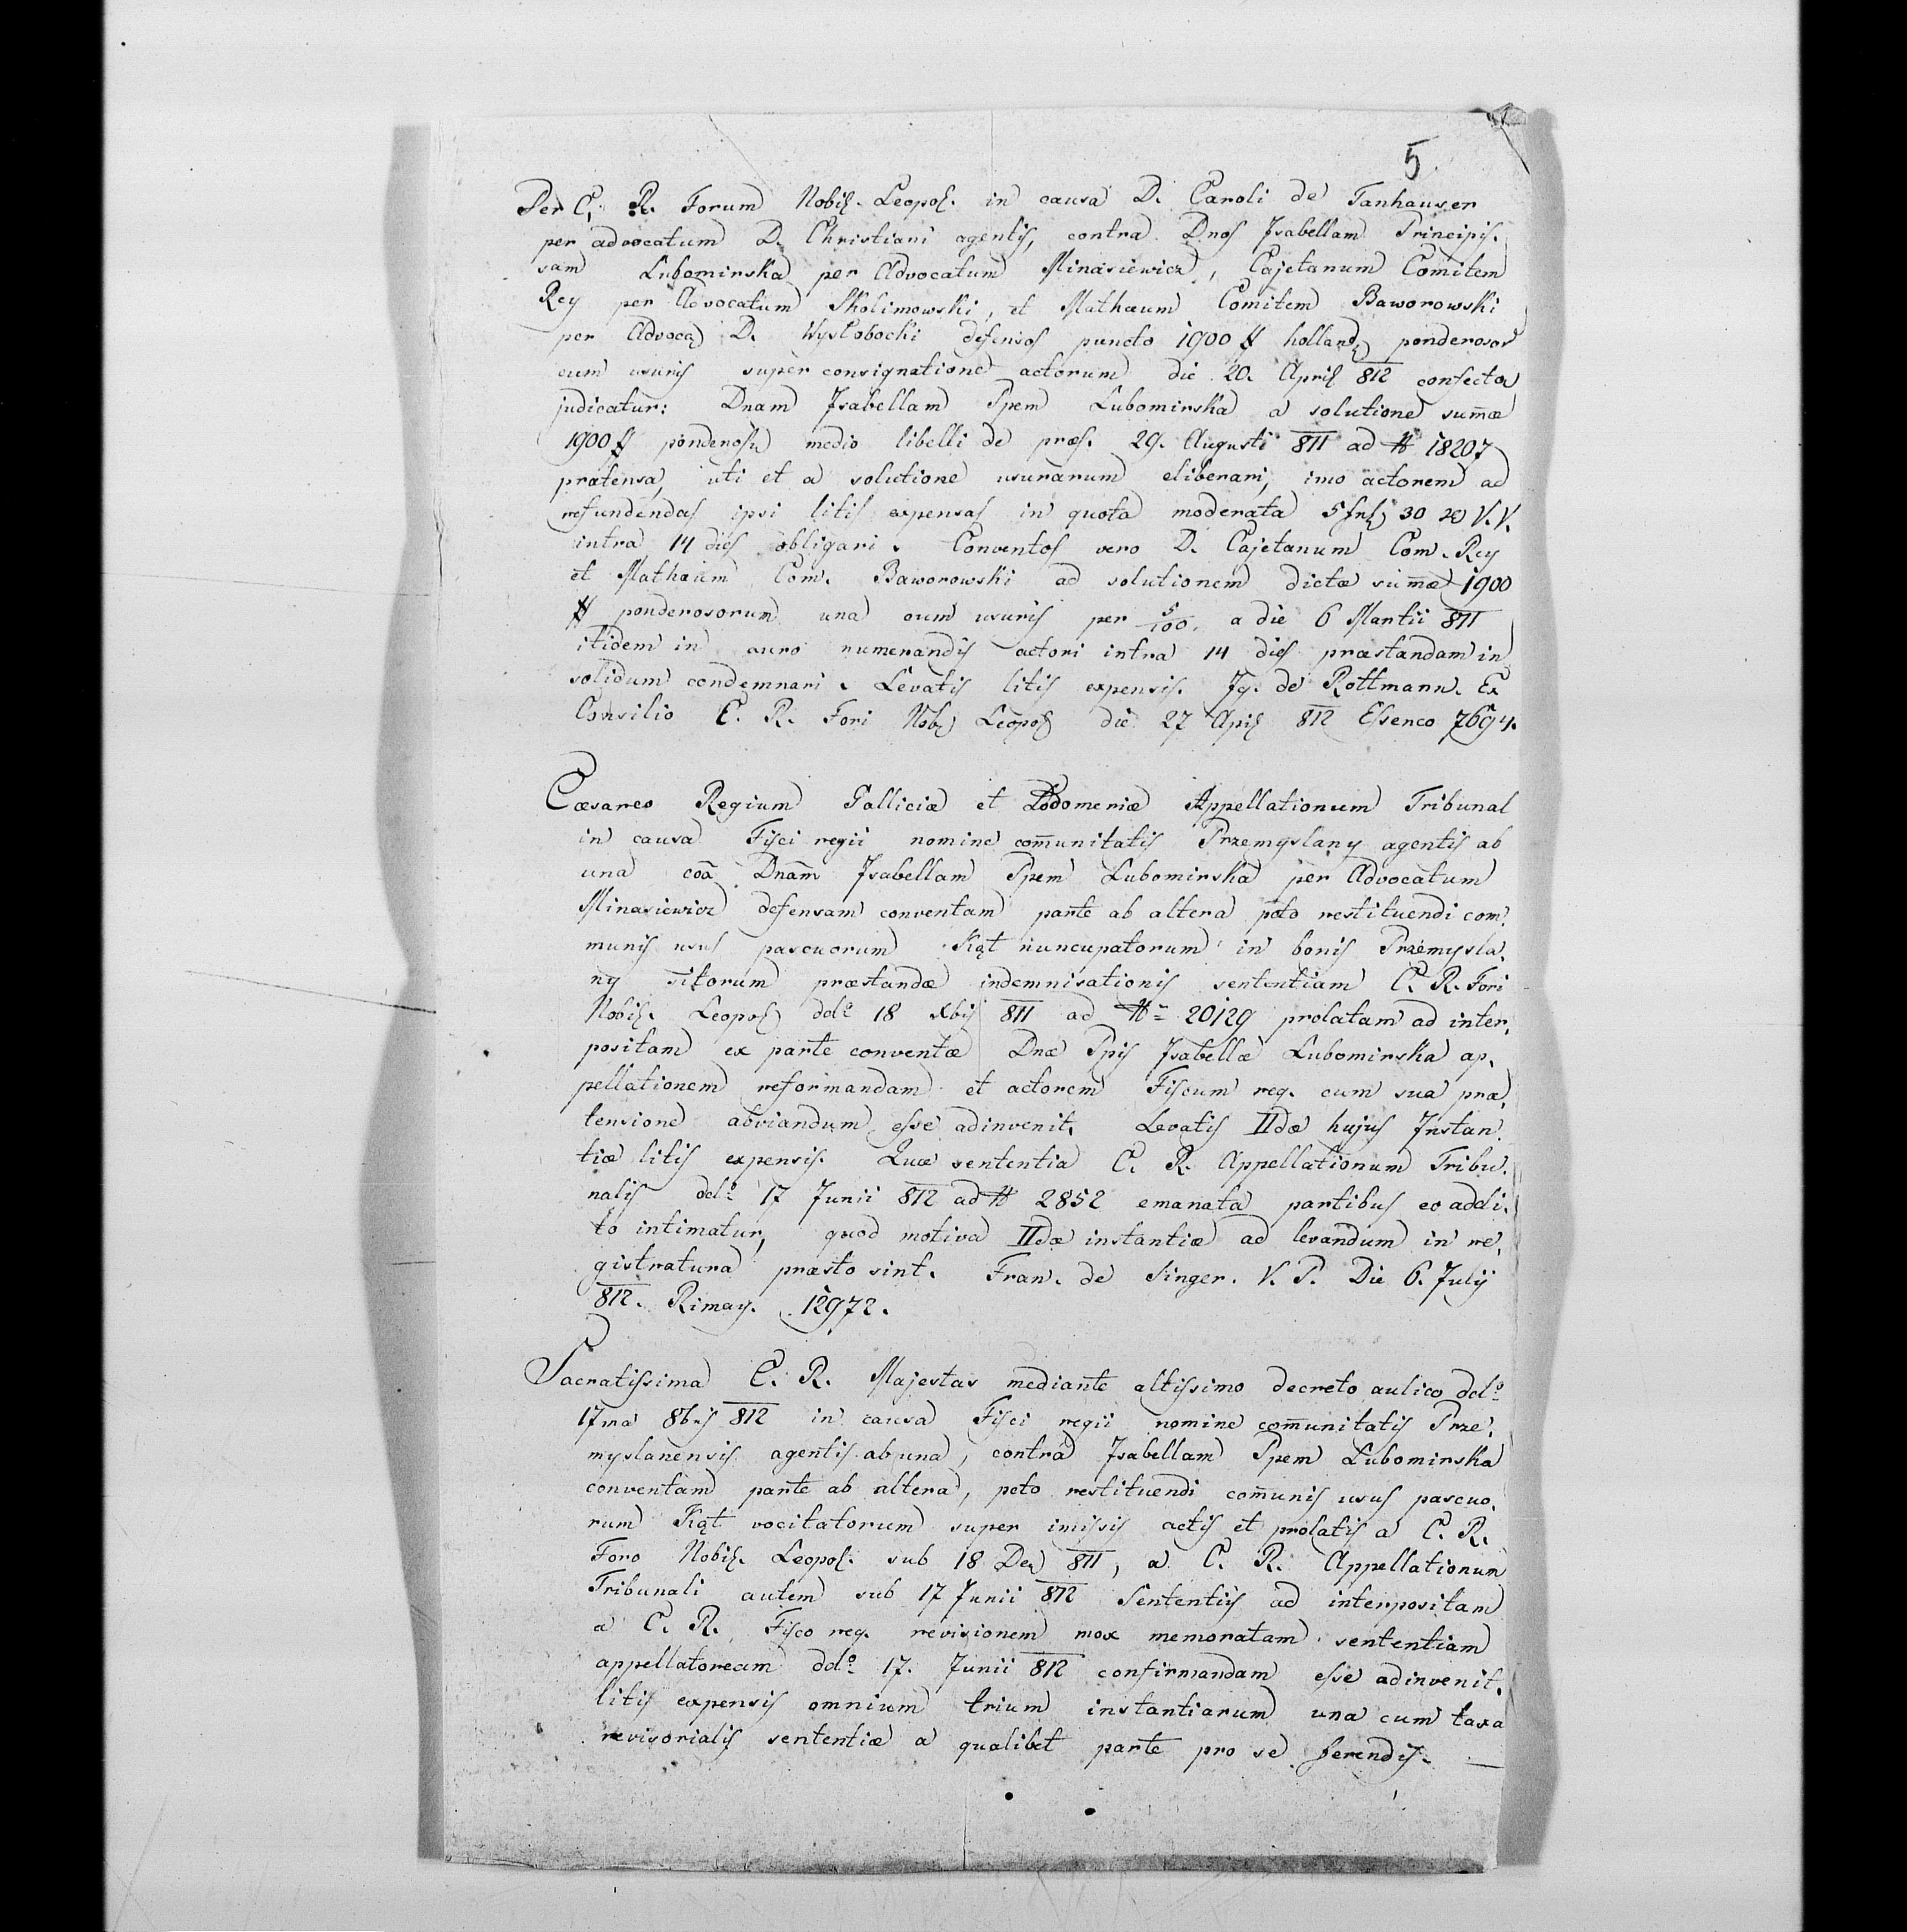 5
Per C. R. Forum Nobil. Leopol. in causa D. Caroli de Tanhauser
per advocatum D. Christiani agentis, contra Dnos Isabellam Principis.
sam Lubomirska per Advocatum Minasiewicz, Cajetanum Comitem
Rey per Advocatum Skolimowski, et Mathæum Comitem Baworowski
per Advoca D. Wysłobocki defensos puncto 1900 # holland ponderosor
cum usuris super consignatione actorum die 20. April 812 confecta
judicatur: Dnam Isabellam Spem Lubomirska a solutione sum̄æ
1900 # ponderosu medio libelli de præs. 29. Augusti 811 ad N 18207
prætensa, uti et a solutione usurarum eliberari, imo actorem ad
refundendas ipsi litis expensas in quota moderata 5 fnl 30 xr V.V.
intra 14 dies obligari. Conventos vero D. Cajetanum Com. Rey
et Mathæum Com. Baworowski ad solutionem dictæ sum̄æ 1900
# ponderosorum una cum usuris per 5/100. a die 6 Martii 811
itidem in auro numerandis actori intra 14 dies præstandam in
solidum condemnari. Levatis litis expensis. Ig. de Rottmann. Ex
Consilio C. R. Fori Nob Leopol die 27 Apil 812 Essenco 7694.
Cæsareo Regium Galliciæ et Lodomeriæ Appellationum Tribunal
in causa Fisci regii nomine com̄unitatis Przemyslany agentis ab
una coã Dnam̄ Isabellam Spem Lubomirska per Advocatum
Minasiewicz defensam conventam parte ab altera pcto restituendi com
munis usus pascuorum Kąt nuncupatorum in bonis Przemysla.
ny sitorum præstandæ indemnisationis sententiam C. R. Fori
Nobil. Leopol ddo 18 Xbis 811 ad Nr 20129 prolatam ad inter.
positam ex parte conventæ Dnæ Spis Isabellæ Lubomirska ap.
pellationem reformandam et actorem Fiscum reg. cum sua præ.
tensione abviandum esse adinvenit. Levatis IIdæ hujus Instan.
tiæ litis expensis. Quæ sententia C. R. Appellationum Tribu.
nalis ddo 17 Junii 812 ad N 2852 emanata partibus eo addi.
to intimatur, quod motiva IIdæ instantiæ ad levandum in re.
gistratura præsto sint. Fran. de Singer. V. P. Die 6. Julij
812. Rimay. 12972.
Sacratissima C. R. Majestas mediante altissimo decreto aulico ddo
17ma 8bris 812 in causa Fisci regii nomine com̄unitatis Prze.
myslanensis agentis ab una, contra Isabellam Spem Lubomirska
conventam parte ab altera, pcto restituendi com̄unis usus pascuo.
rum Kąt vocitatorum super imissis actis et prolatis a C. R.
Foro Nobil. Leopol. sub 18 De 811, a C. R. Appellationum
Tribunali autem sub 17 Junii 812 Sententiis ad interpositam
a C. R. Fisco reg. revisionem mox memoratam sententiam
appellatoream ddo 17. Junii 812 confirmandam esse adinvenit.
litis expensis omnium trium instantiarum una cum taxa
revisorialis sententiæ a qualibet parte pro se ferendis.